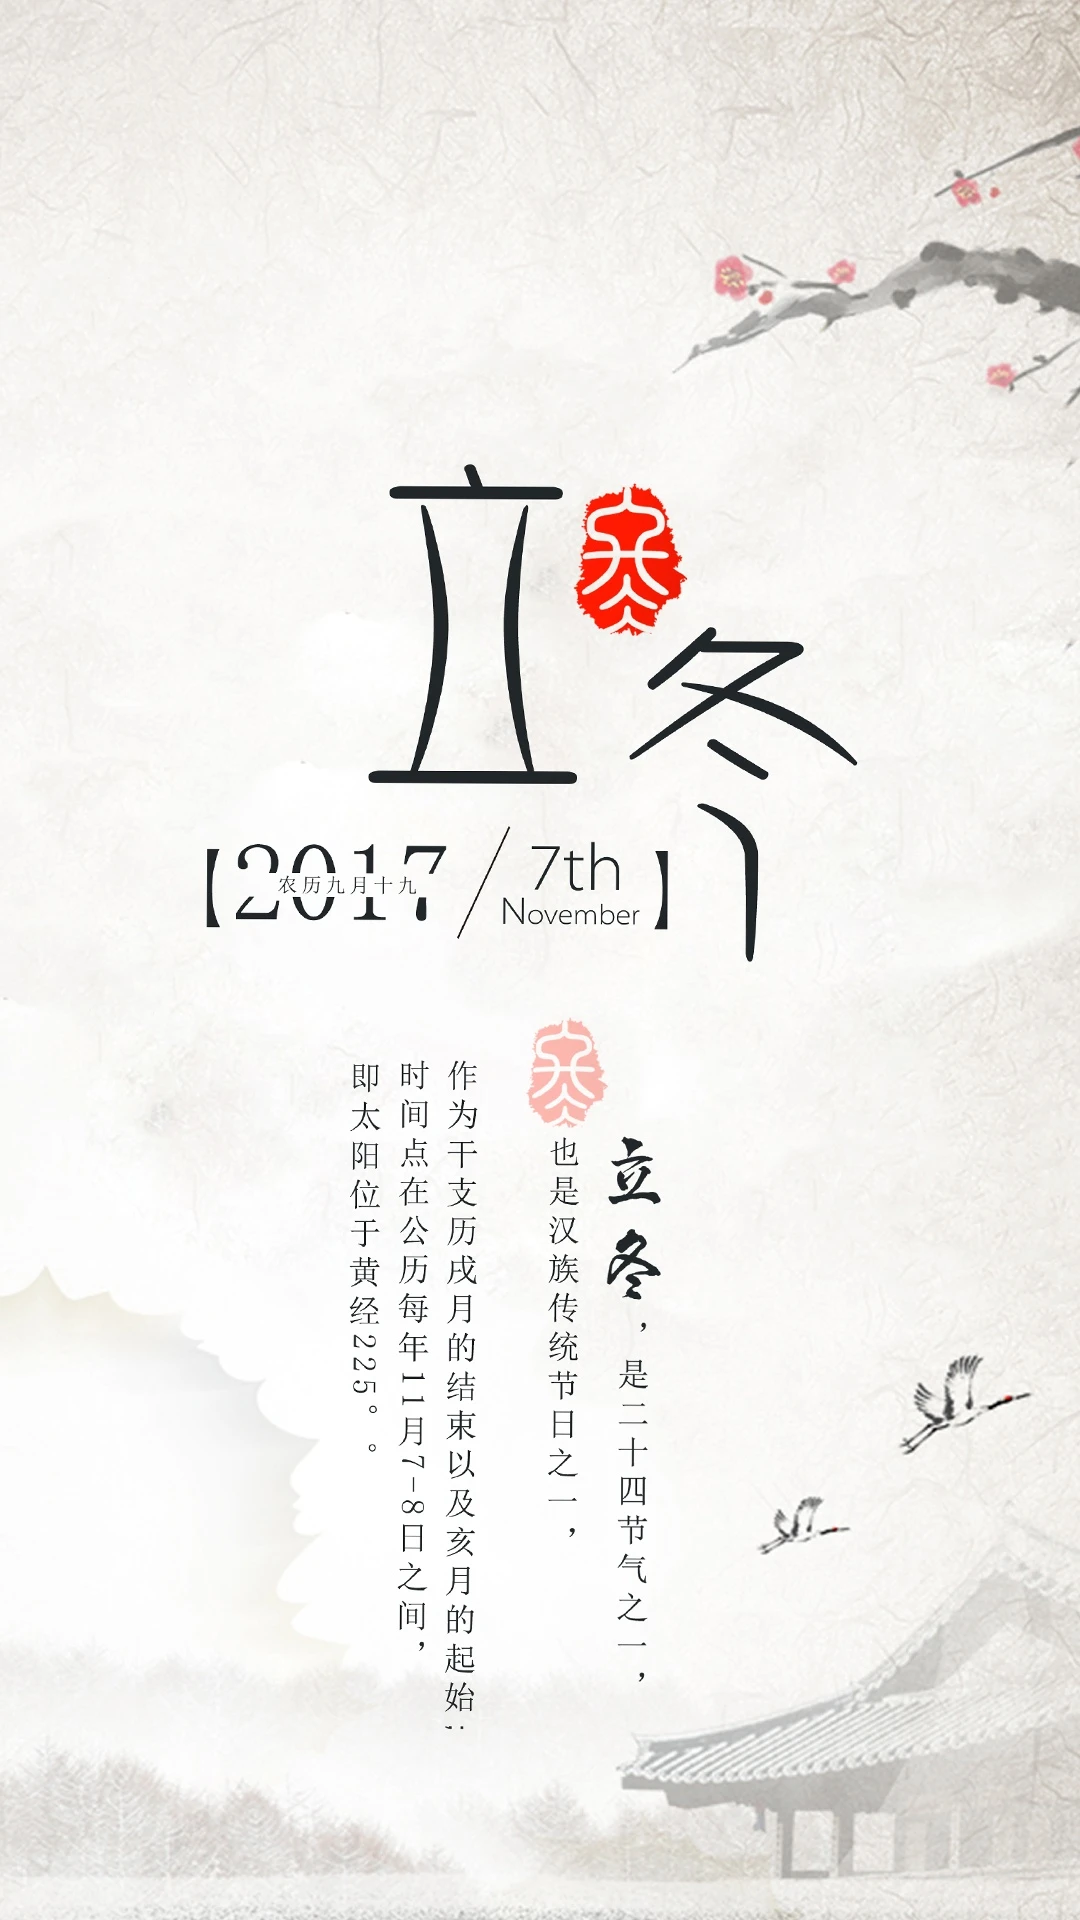 立冬
【2017／7th November】
农历九月十九
立冬，是二十四节气之一，
也是汉族传统节日之一，
作为干支历戌月的结束以及亥月的起始；
时间点在公历每年11月7-8日之间，
即太阳位于黄经225°。